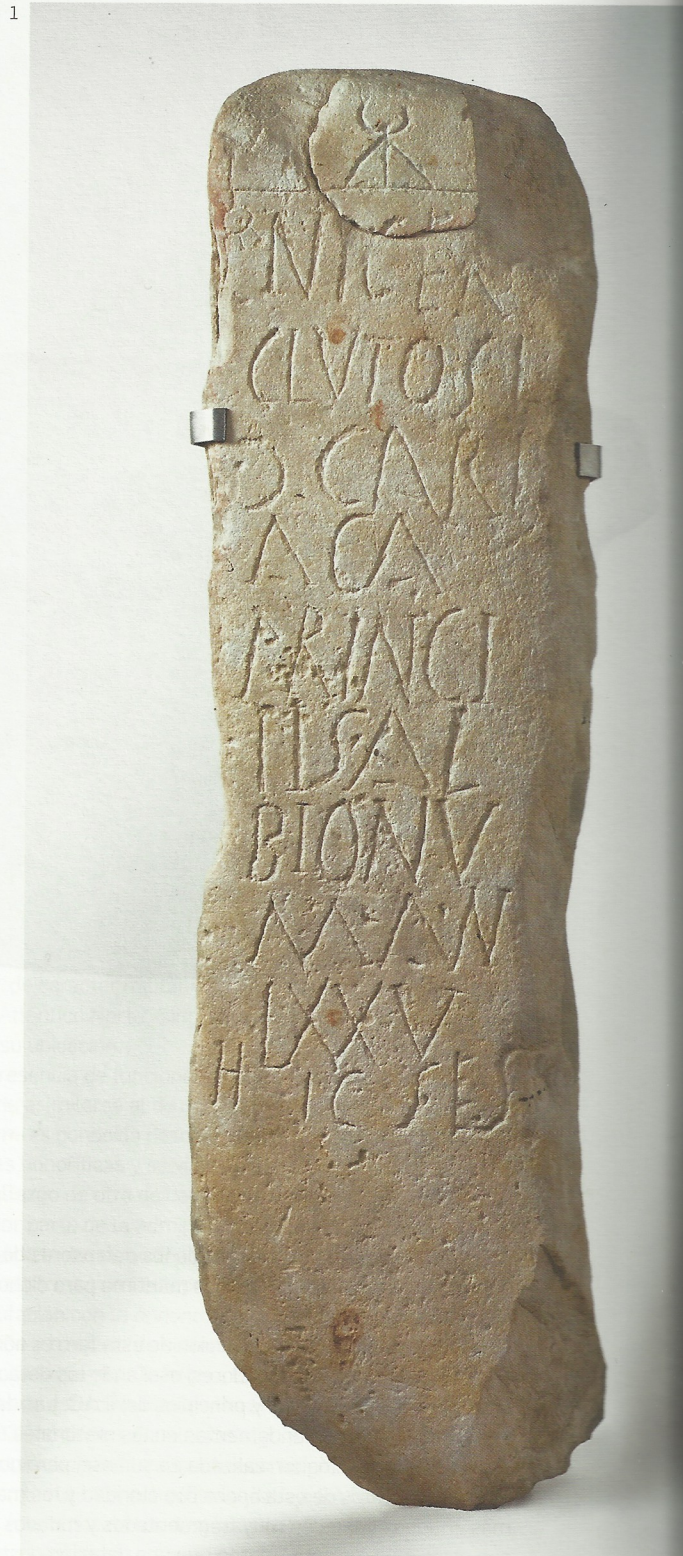 1
NICER
CLVTOSI
Ɔ CARI
ACA
PRINCI
PISAL
BIONV
M AN
LXXV
HIC S EST